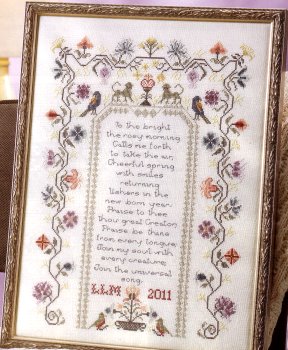 To the bright
the rosy morning
Calls me forth
to take the air,
Cheerful spring
with smiles
returning
Ushers in the
new born year.
Praise to thee
thou great Creator,
Praise be thine
from every tongue,
Join my soul with
every creature,
Join the universal
song.
LLM 2011